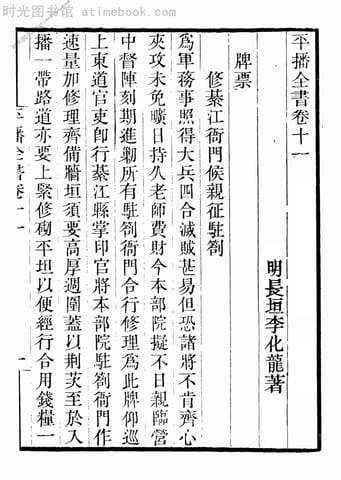 时光图书馆 atimebook.com
平播全書卷十一
明長垣李化龍著
牌票
修綦江衙門候親征駐劄
爲軍務事照得大兵四合滅賊甚易但恐諸將不肯齊心
夾攻未免曠日持久老師費財今本部院擬不日親臨營
中督陣刻期進勦所有駐劄衙門合行修理爲此牌仰巡
上東道官吏卽行綦江縣掌印官將本部院駐劄衙門作
速量加修理齊備牆垣須要高厚週圍蓋以荆茨至於入
播一帶路道亦要上緊修砌平坦以便經行合用錢糧一
平播全書卷十一
一